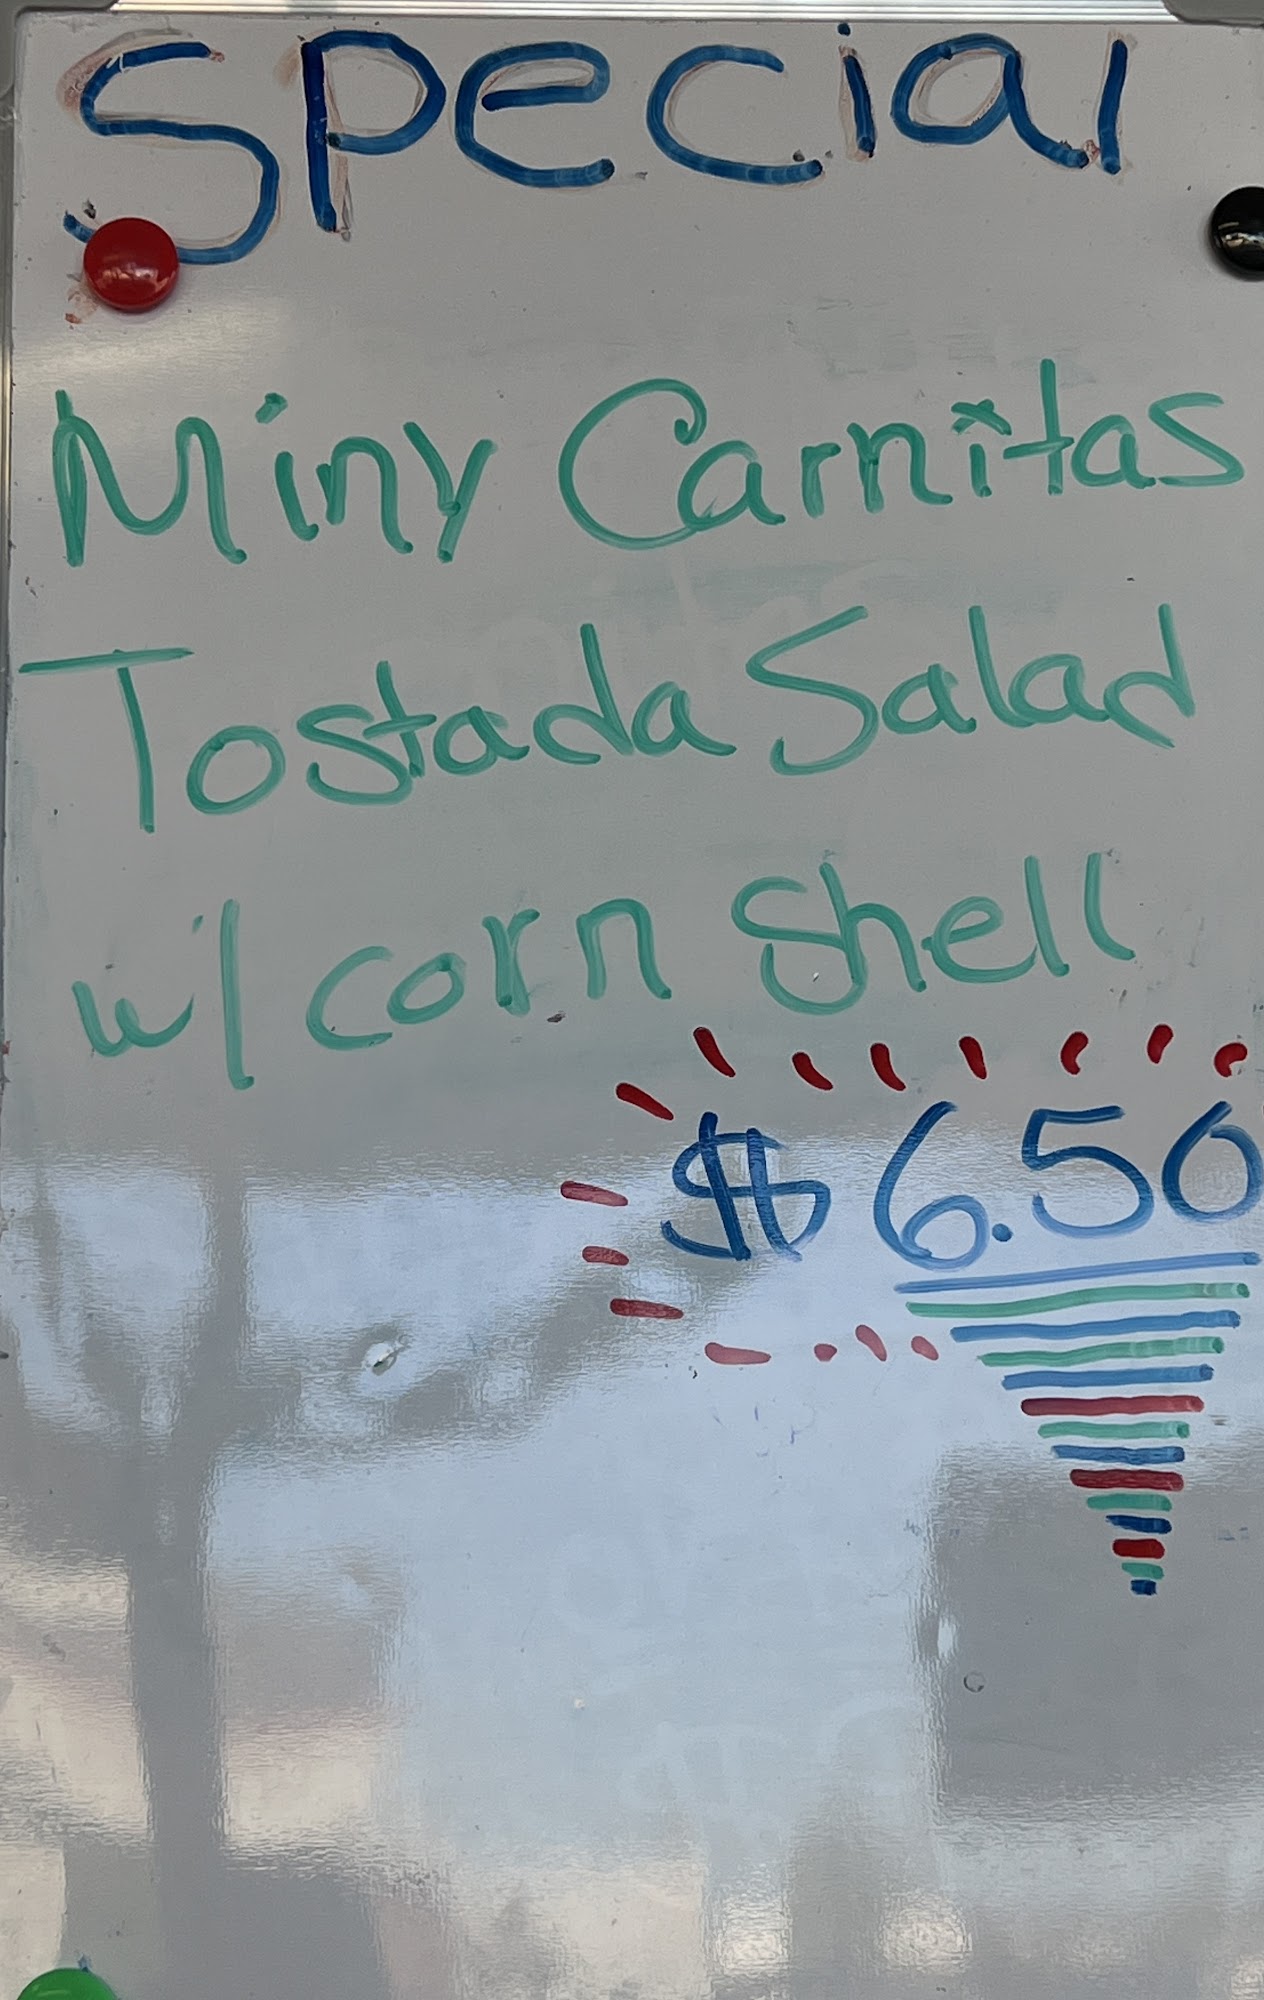 Special
Miny Carnitas
Tostada Salad
w/ corn shell
$6.50